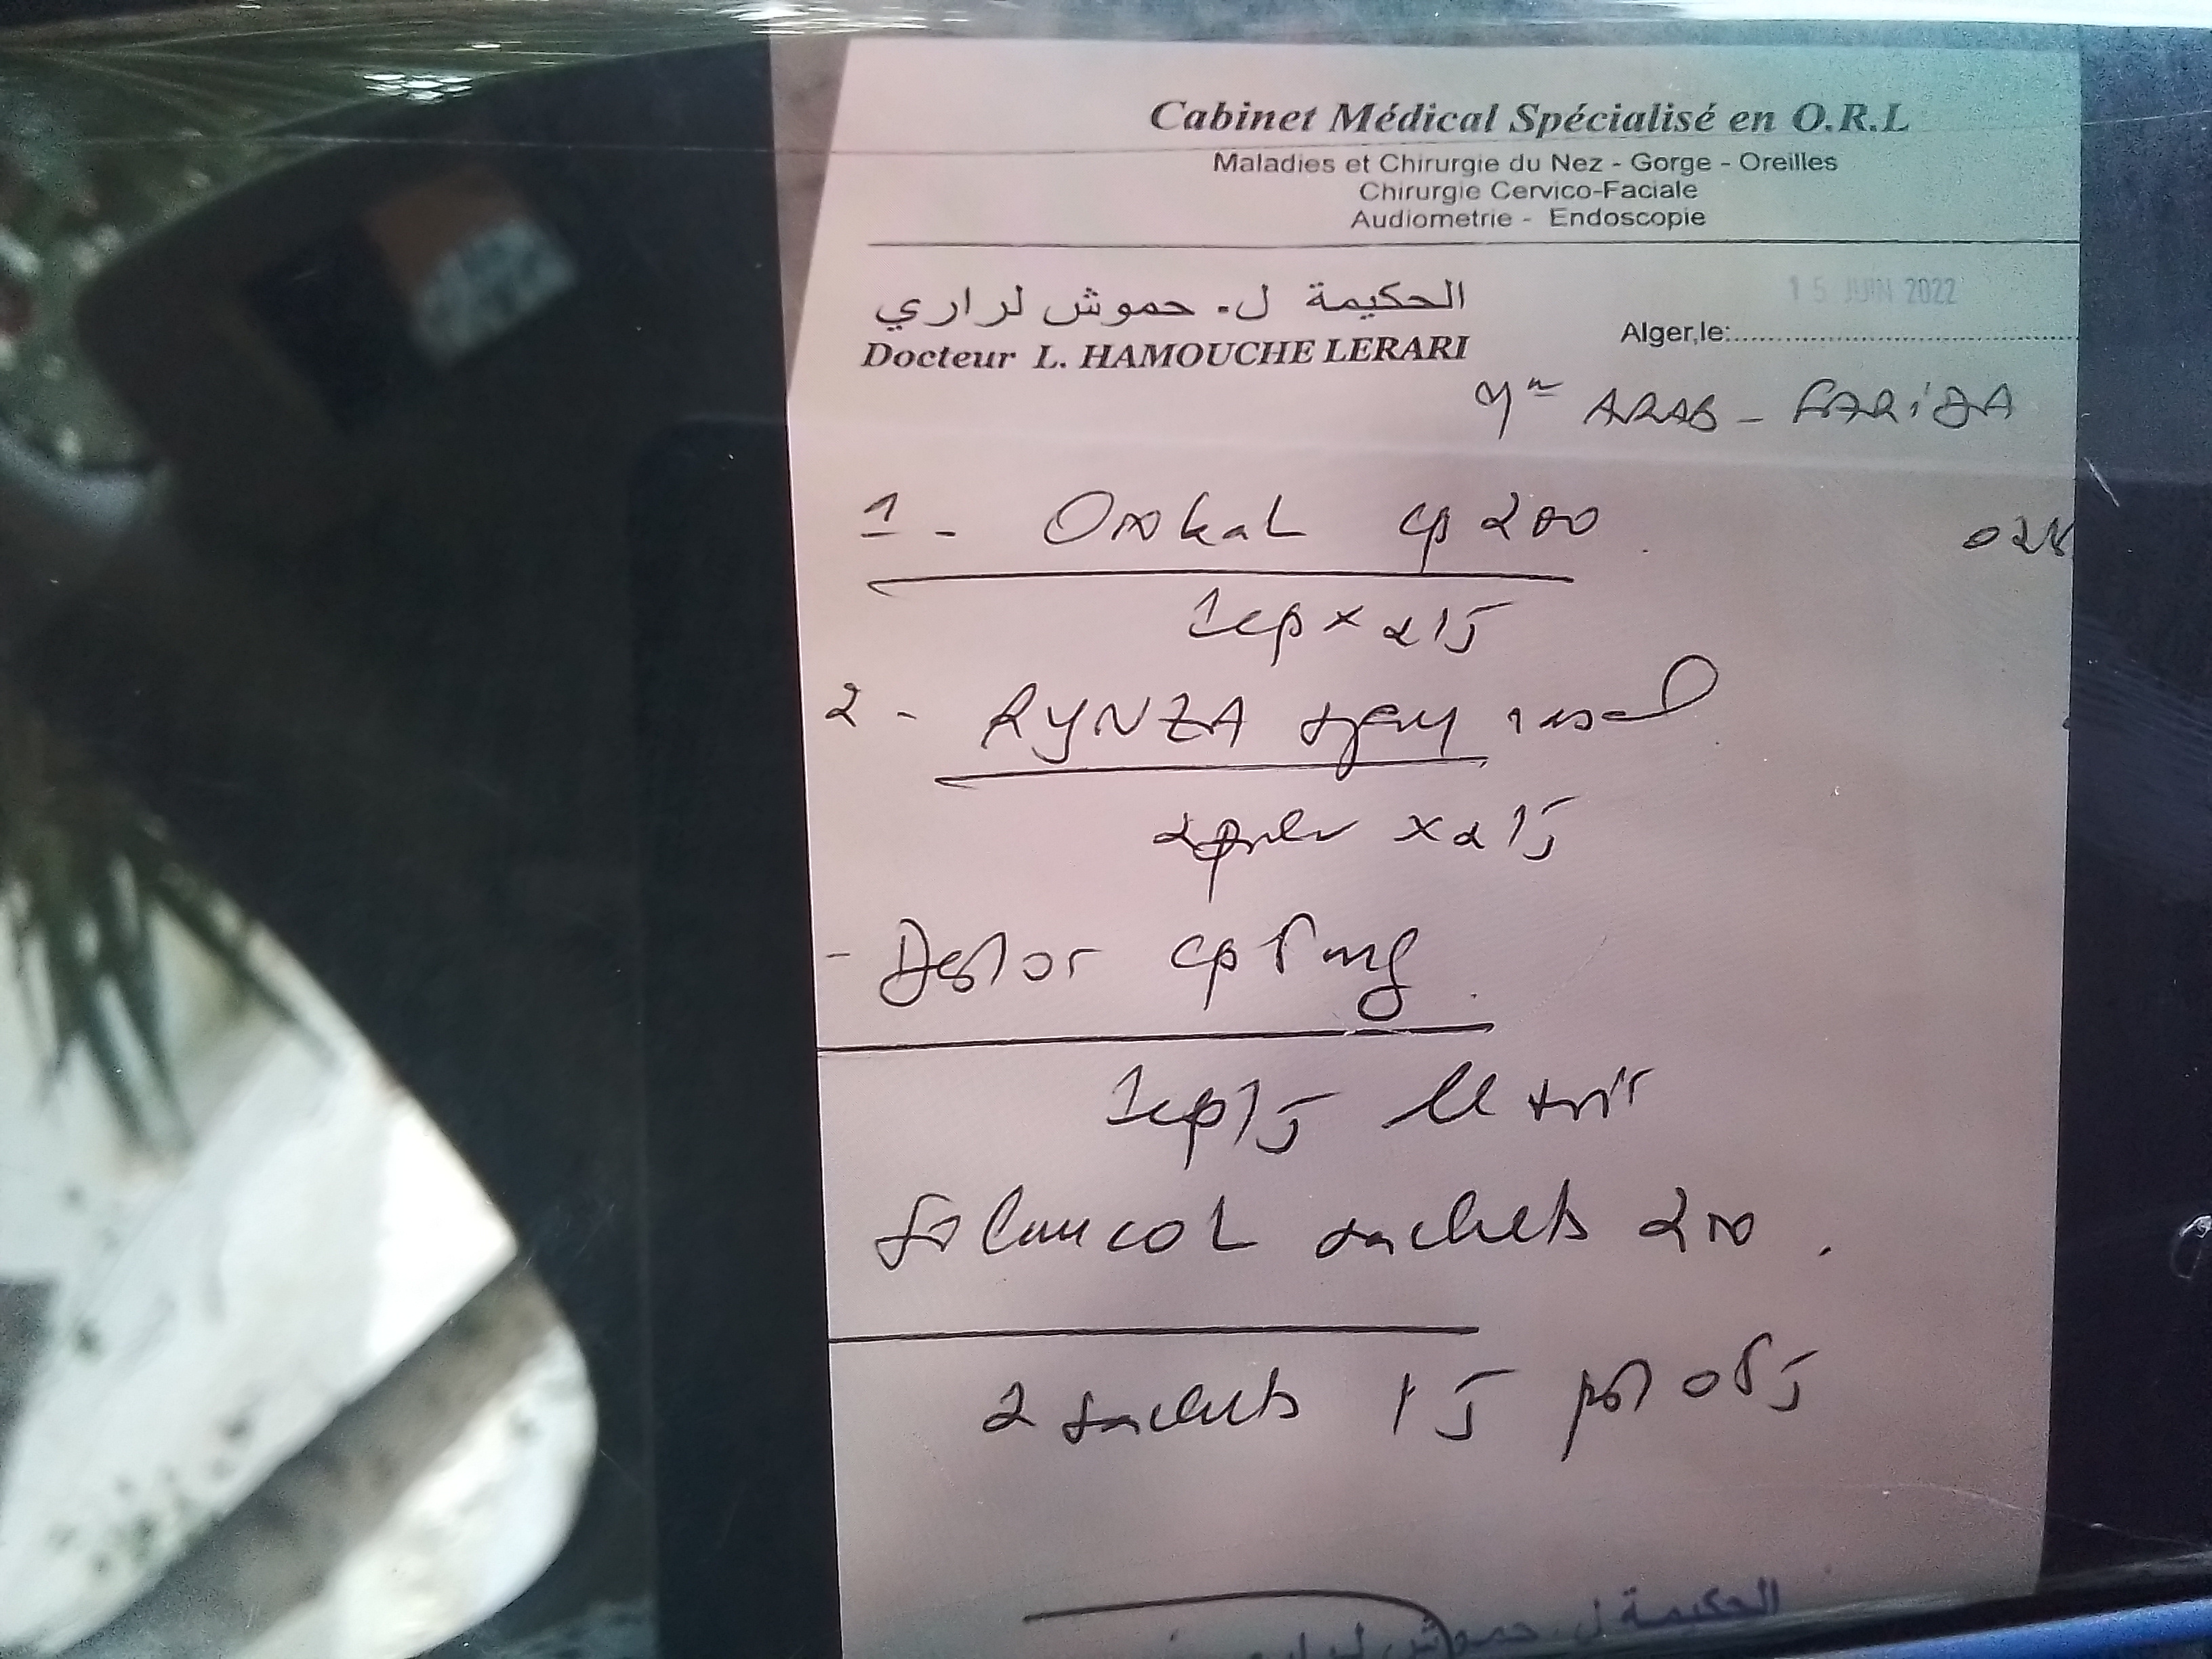 Cabinet Médical Spécialisé en O.R.L
Maladies et Chirurgie du Nez - Gorge - Oreilles
Chirurgie Cervico-Faciale
Audiometrie - Endoscopie
الحكيمة ل. حموش لراري
Docteur L. HAMOUCHE LERARI
15 JUIN 2022
Alger,le:
Mme ARAB - FARIDA
1 - cp 200
1cp x 2/j
2 - RYNZA spray nasal
x 2/j
- cp 5 mg
1cp/j le soir
sachets 200
2 sachets /j 05j
الحكيمة ل. حموش لراري